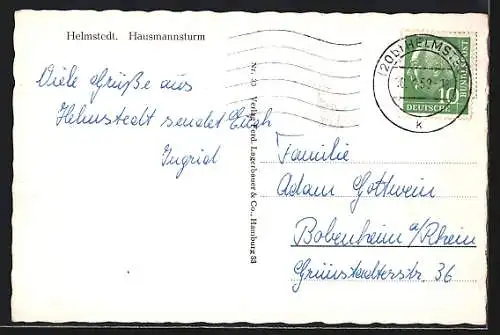 Helmstedt. Hausmannsturm
Viele Grüße aus
Helmstedt sendet Euch
Ingrid
Nr. 30 Verlag Ferd. Lagerbauer & Co., Hamburg 33
(20b) HELMSTE
k
10
DEUTSCHE
BUNDESPOST
Familie
Adam Gottwein
Bobenheim a/Rhein
Grünstadterstr. 36